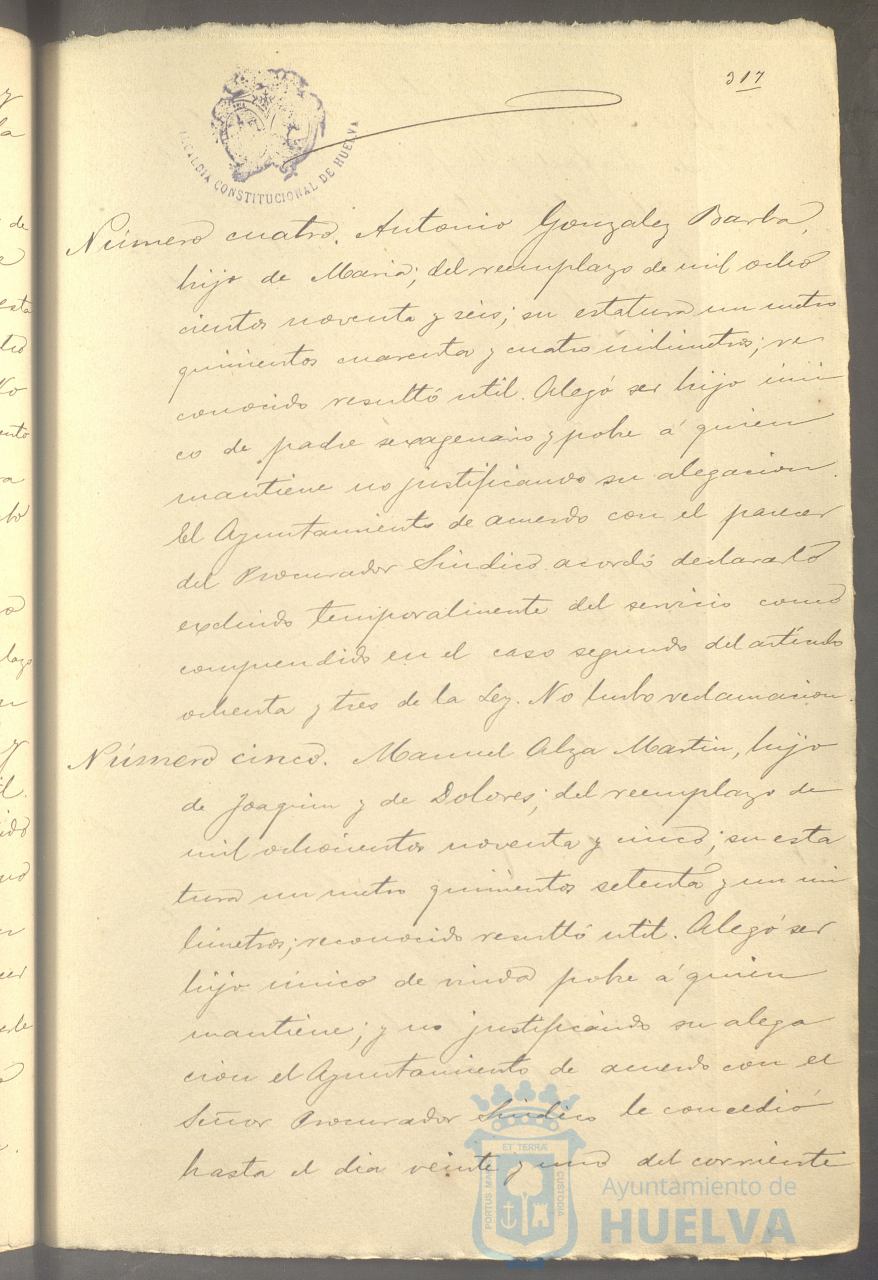 317
ALCALDIA CONSTITUCIONAL DE HUELVA
Número cuatro. Antonio Gonzalez Barba,
hijo de Maria; del reemplazo de mil ocho
cientos noventa y séis; su estatura un metro
quinientos cuarenta y cuatro milimetros; re
conocido resultó util. Alegó ser hijo úni
co de padre sexagenario y pobre á quien
mantiene no justificando su alegacion.
El Ayuntamiento de acuerdo con el parecer
del Procurador Sindico acordó declararlo
excluido temporalmente del servicio como
comprendido en el caso segundo del artículo
ochenta y tres de la Ley. No hubo reclamacion.
Número cinco. Manuel Alza Martin, hijo
de Joaquin y de Dolores; del reemplazo de
mil ochocientos noventa y cinco; su esta
tura un metro quinientos setenta y un mi
límetros; reconocido resultó util. Alegó ser
hijo único de viuda pobre á quien
mantiene; y no justificando su alega
cion el Ayuntamiento de acuerdo con el
Señor Procurador Sindico le concedió
hasta el dia veinte y uno del corriente
ET TERRÆ
PORTUS MA
CUSTODIA
Ayuntamiento de
HUELVA